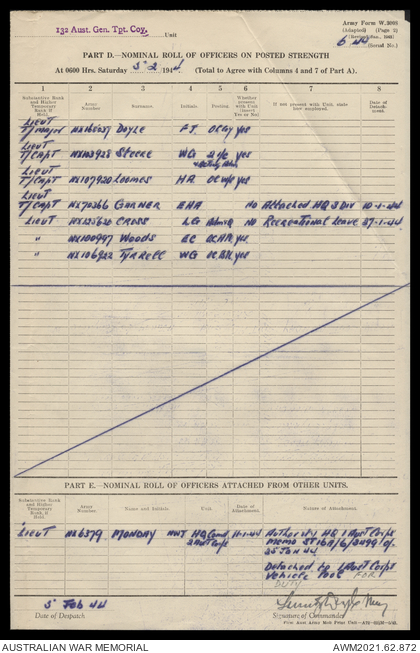 132 Aust. Gen. Tpt. Coy. Unit
Army Form W.3008
(Adapted) (Page 2)
(Revised 1943)
(Serial No.)
PART D.—NOMINAL ROLL OF OFFICERS ON POSTED STRENGTH
At 0600 Hrs. Saturday 5-2 1944 (Total to Agree with Columns 4 and 7 of Part A).
1 2 3 4 5 6 7 8
Substantive Rank and Higher Temporary Rank if Held. Army Number. Surname. Initials Posting Whether present with Unit (insert Yes or No) If not present with Unit, state how employed. Date of Detachment
Lieut
T/Major Doyle FJ OC Coy yes
Lieut
T/Capt NX103928 Steeke WG 2 i/c yes
Lieut
T/Capt NX107920 Loomes HA yes
Lieut
T/Capt NX70366 Garner EHA no Attached HQ 3 Div 10-1-44
Lieut NX125620 Cross LG no Recreational Leave 27-1-44
" NX100997 Woods yes
" NX106922 Tyrrell WG yes
PART E.—NOMINAL ROLL OF OFFICERS ATTACHED FROM OTHER UNITS.
Substantive Rank and Higher Temporary Rank if Held. Army Number. Name and Initials. Unit. Date of Attachment. Nature of Attachment.
Lieut NX6379 Monday 11-1-44 Authority HQ 1 Aust Corps
Memo of
25 Jan 44
Detached to 1 Aust Corps
Vehicle Pool FOR
DUTY
5 Feb 44
Date of Despatch Signature of Commander
AUSTRALIAN WAR MEMORIAL AWM2021.62.872